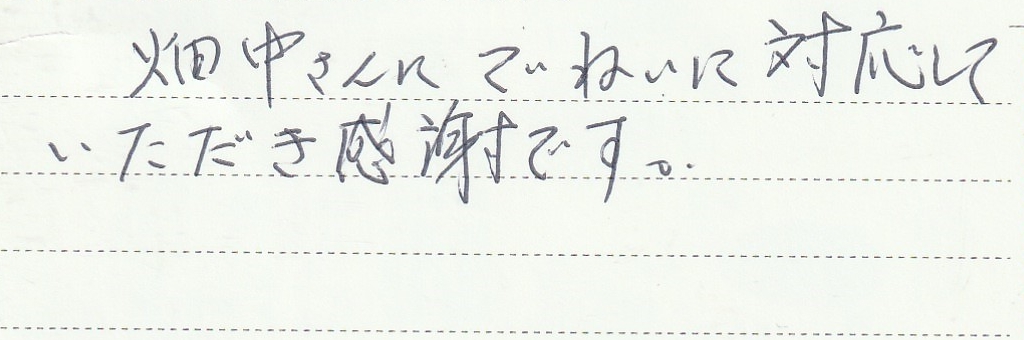 畑中さんにていねいに対応して
いただき感謝です。